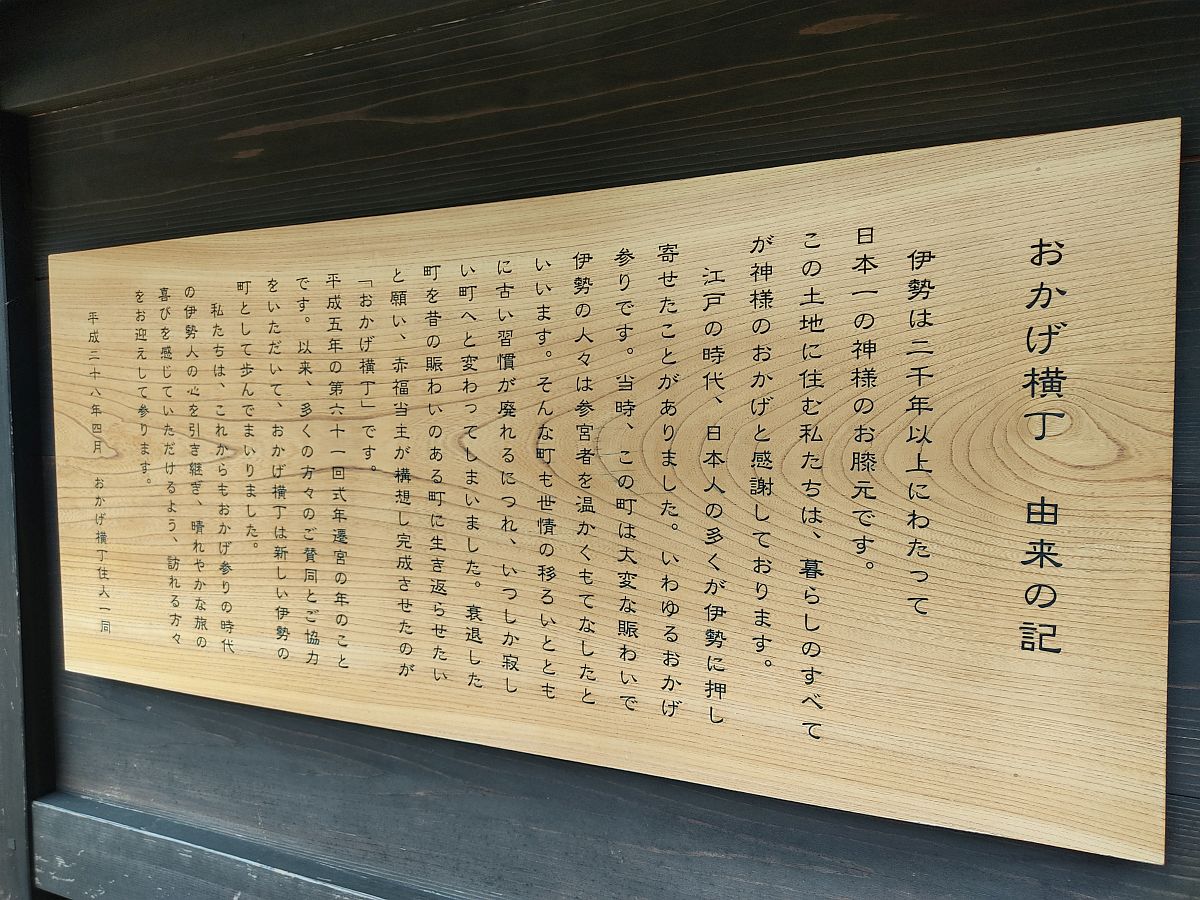 おかげ横丁　由来の記
　伊勢は二千年以上にわたって
日本一の神様のお膝元です。
この土地に住む私たちは、暮らしのすべて
が神様のおかげと感謝しております。
　江戸の時代、日本人の多くが伊勢に押し
寄せたことがありました。いわゆるおかげ
参りです。当時、この町は大変な賑わいで
伊勢の人々は参宮者を温かくもてなしたと
いいます。そんな町も世情の移ろいととも
に古い習慣が廃れるにつれ、いつしか寂し
い町へと変わってしまいました。衰退した
町を昔の賑わいのある町に生き返らせたい
と願い、赤福当主が構想し完成させたのが
「おかげ横丁」です。
平成五年の第六十一回式年遷宮の年のこと
です。以来、多くの方々のご賛同とご協力
をいただいて、おかげ横丁は新しい伊勢の
町として歩んでまいりました。
　私たちは、これからもおかげ参りの時代
の伊勢人の心を引き継ぎ、晴れやかな旅の
喜びを感じていただけるよう、訪れる方々
をお迎えして参ります。
平成二十八年四月　おかげ横丁住人一同